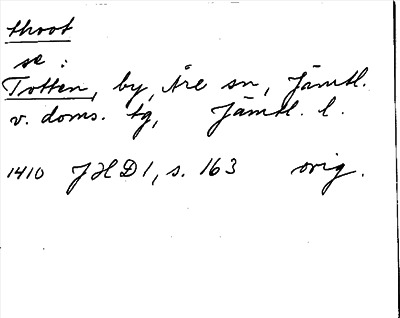 throt
se:
Totten, by, Åre sn, Jämtl.
v. doms. tg, Jämtl. l.
1410 JHD1, s. 163 orig.